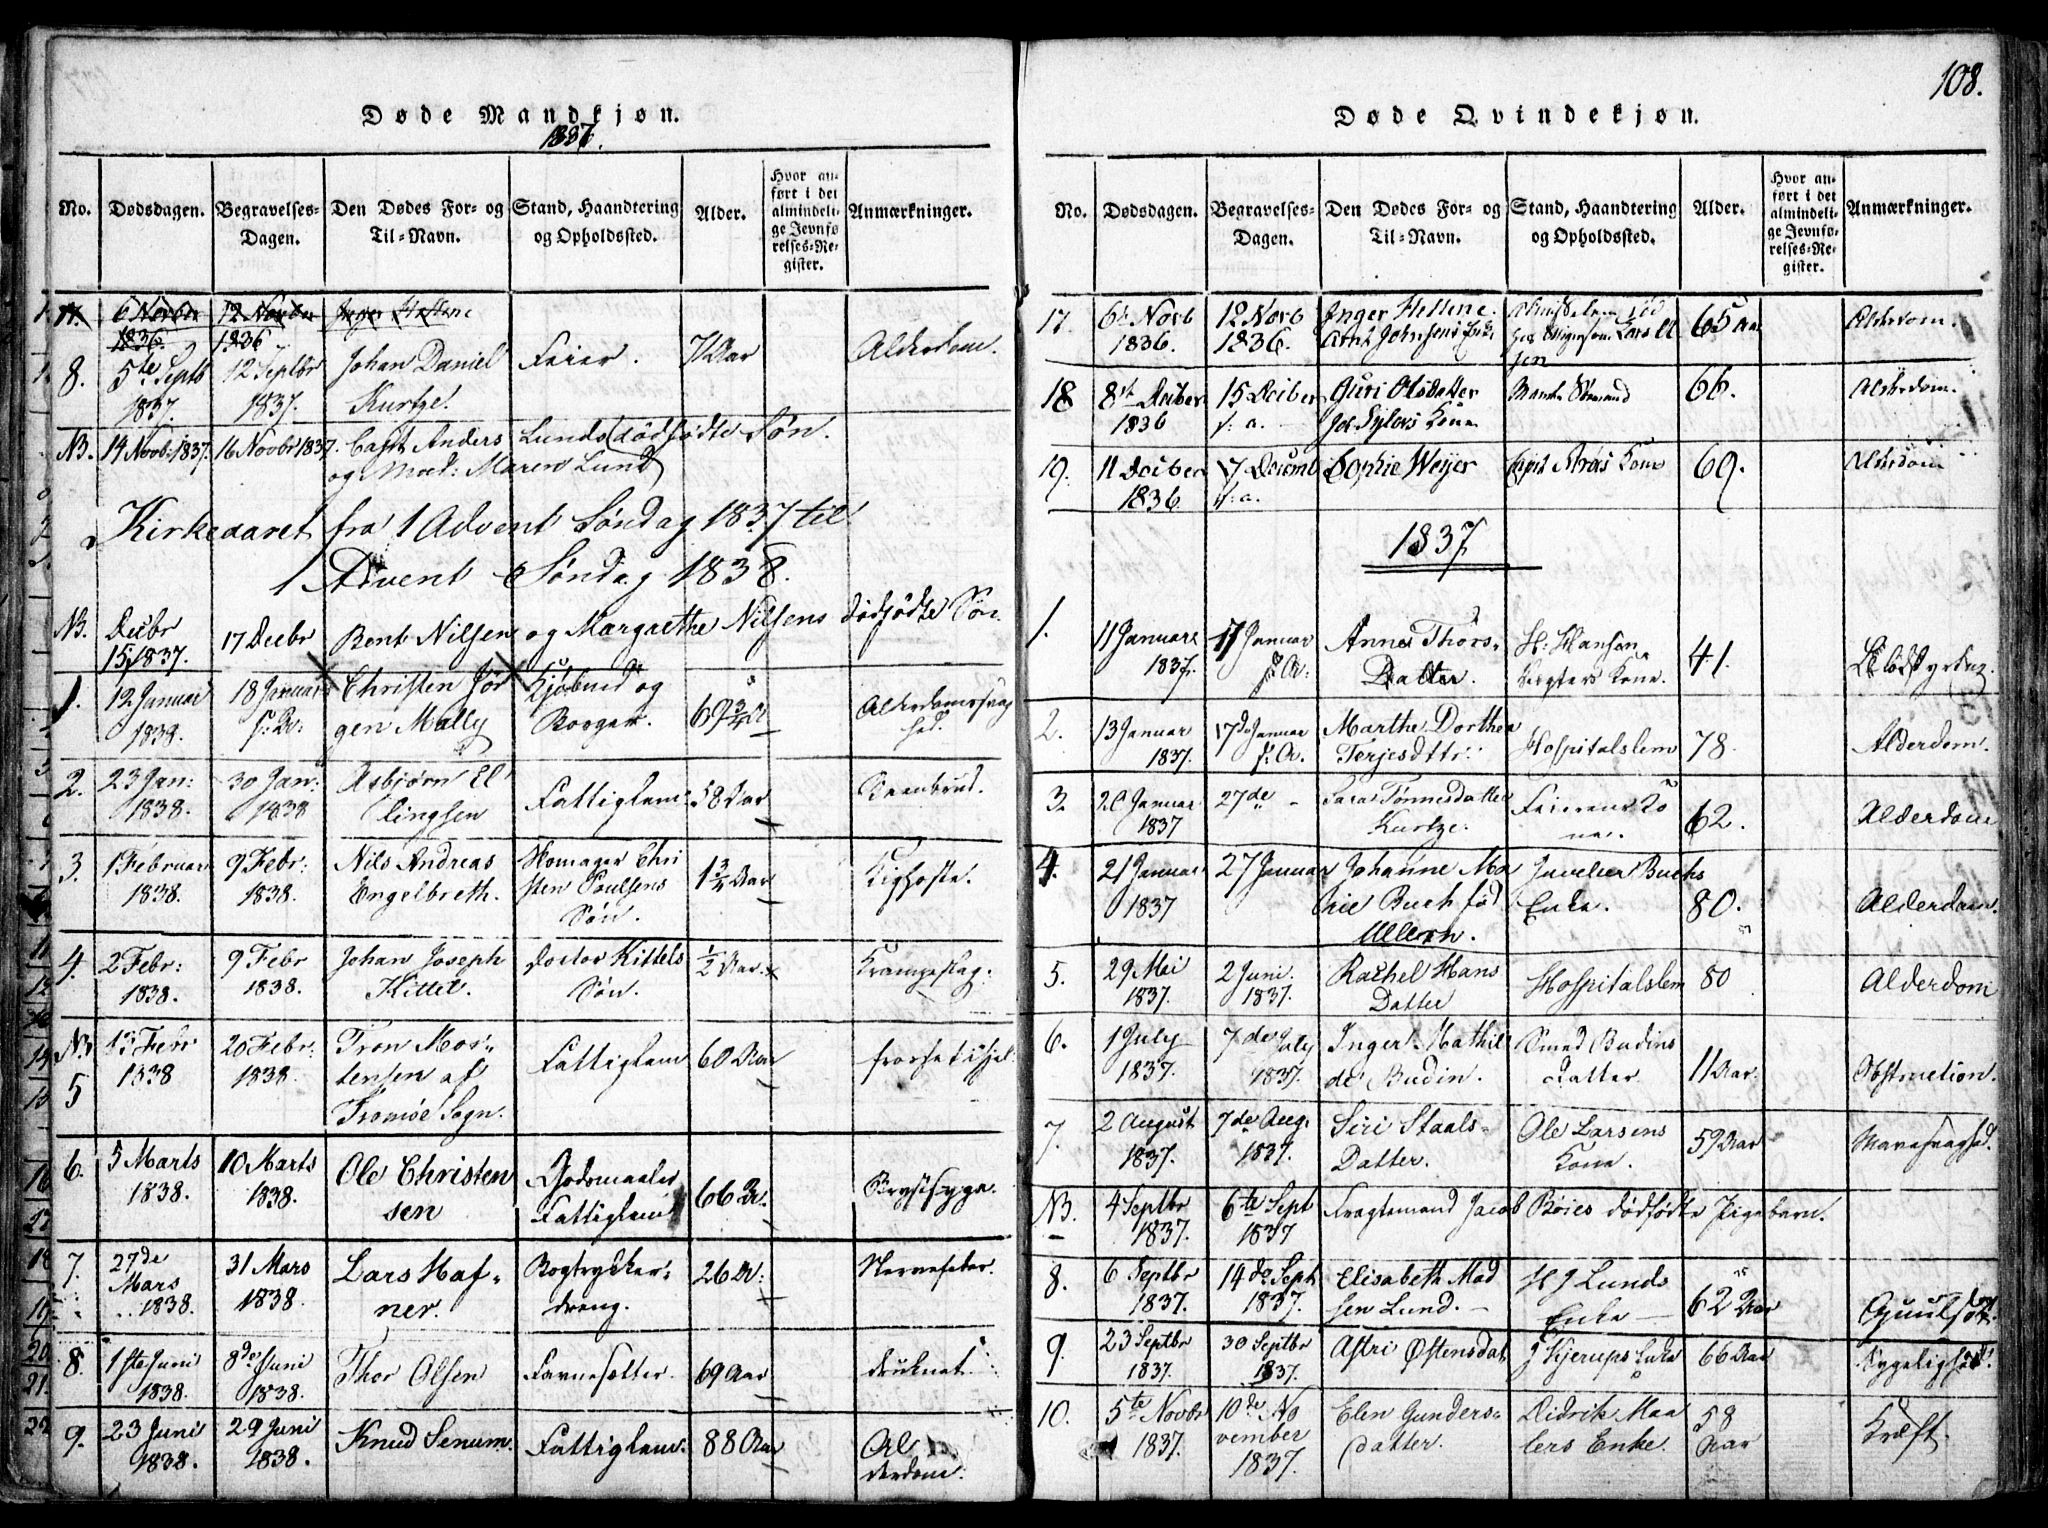 Døde Mandkjøn.
1837.
No. Dødsdagen. Begravelses-Dagen. Den Dødes For- og Til-Navn. Stand, Haandtering og Opholdssted. Alder. Hvor anført i det almindelige Jevnførelses-Register. Anmærkninger.
6 Novber 1836. 12 Novber 1836 Inger Hellene
8. 5te Septb 1837. 12 Septbr 1837. Johan Daniel Kurtze. Feier. 71 Aar Alderdom.
NB. 14 Novb: 1837. 16 Novbr 1837. Capt Anders Lunds dødfødte Søn.
og Mad: Maren Lund
Kirkeaaret fra 1 Advent Søndag 1837 til
1 Advent Søndag 1838.
NB. Decbr 15, 1837. 17 Decbr Bent Nilsen og Margrethe Nilsens dødfødte Søn.
1. 12 Januar 1838. 18 Januar Christen Jørgen Mally Kjøbmd og Borger. 69 3/4 Alderdomssvaghed.
2. 23 Jan: 1838. 30 Jan: 1838 Asbjørn Ellingsen Fattiglem 58 Aar Beenbrud.
3. 1 Februar 1838. 9 Febr: 1838. Nils Andreas Engelbreth. Christen Poulsens Søn. 1 3/4 Aar Kighoste.
4. 2 Febr: 1838. 9 Febr 1838. Johan Joseph Kittel. Doctor Kittels Søn. 1/2 Aar. Krampeslag.
NB 5 13 Febr 1838 20 Febr: 1838. Tron Mortensen af Tromøe Sogn. Fattiglem 60 Aar
6. 5 Marts 1838. 10 Marts 1838. Ole Christensen Fattiglem 66 Ar. Brystsyge.
7. 27de Mars 1838. 31 Mars 1838. Lars Hafner. Bogtrykkerdreng. 26 Ar: Nervefeber.
8. 1ste Juni 1838. 8de Juni 1838. Thor Olsen Farvesætter. 69 Aar druknet.
9. 23 Juni 1838. 29 Juni 1838. Knud Senum. Fattiglem. 88 Aar Alderdom.
108.
Døde Qvindekjøn.
No. Dødsdagen. Begravelses-Dagen. Den Dødes For- og Til-Navn. Stand, Haandtering og Opholdssted. Alder. Hvor anført i det almindelige Jevnførelses-Register. Anmærkninger.
17. 6te Novb 1836. 12 Novb 1836. Inger Hellene Arnt Johnsens 65 Aar Alderdom.
18 8de Decber 1836 15 Decber s: a. Guri Olsdatter Kone 66. Alderdom.
19. 11 Decber 1836 17 Decemb s: a. Sophie Weyer Kone 69. Alderdom
1837
1. 11 Januari 1837. 17 Januar s: A: Anne Thorsdatter. H: Hansen Kone. 41.
2. 13 Januar 1837. 17de Januar s: A. Marthe Dorthea Terjesdttr: Hospitalslem 78. Alderdom.
3. 20 Januar 1837 27de - Sara Tønnesdatter Kurtze. Feierens Kone. 62. Alderdom
4. 21 Januar 1837 27 Januar Johanne Marie Buch fød Ullern. Juveleer Buchs Enke. 80. Alderdom.
5. 29 Mai 1837. 2 Juni. 1837. Rachel Hans Datter Hospitalslem 80 Alderdom
6. 1 July 1837. 7de July 1837. Inger Mathilde Budin. Smed Budins Datter. 11 Aar. Obstruction.
7. 2 August 1837. 7de Aug. 1837. Siri Staals-Datter. Ole Larsens Kone. 59 Aar
NB. 4 Septbr 1837. 6te Sept 1837 Fragtemand Jacob Bøies dødfødte Pigebarn.
8. 6 Septbr 1837. 14de Sept 1837. Elisabeth Madsen Lund. H J Lunds Enke 62 Aar Guulsot.
9. 23 Septbr 1837. 30 Septbr 1837. Astri Østensdat J Kjerups Enke 66 Aar Sygelighed.
10. 5te Novbr 1837. 10de November 1837. Elen Gundersdatter. Didrik Maalers Enke. 58 Aar Kræft.